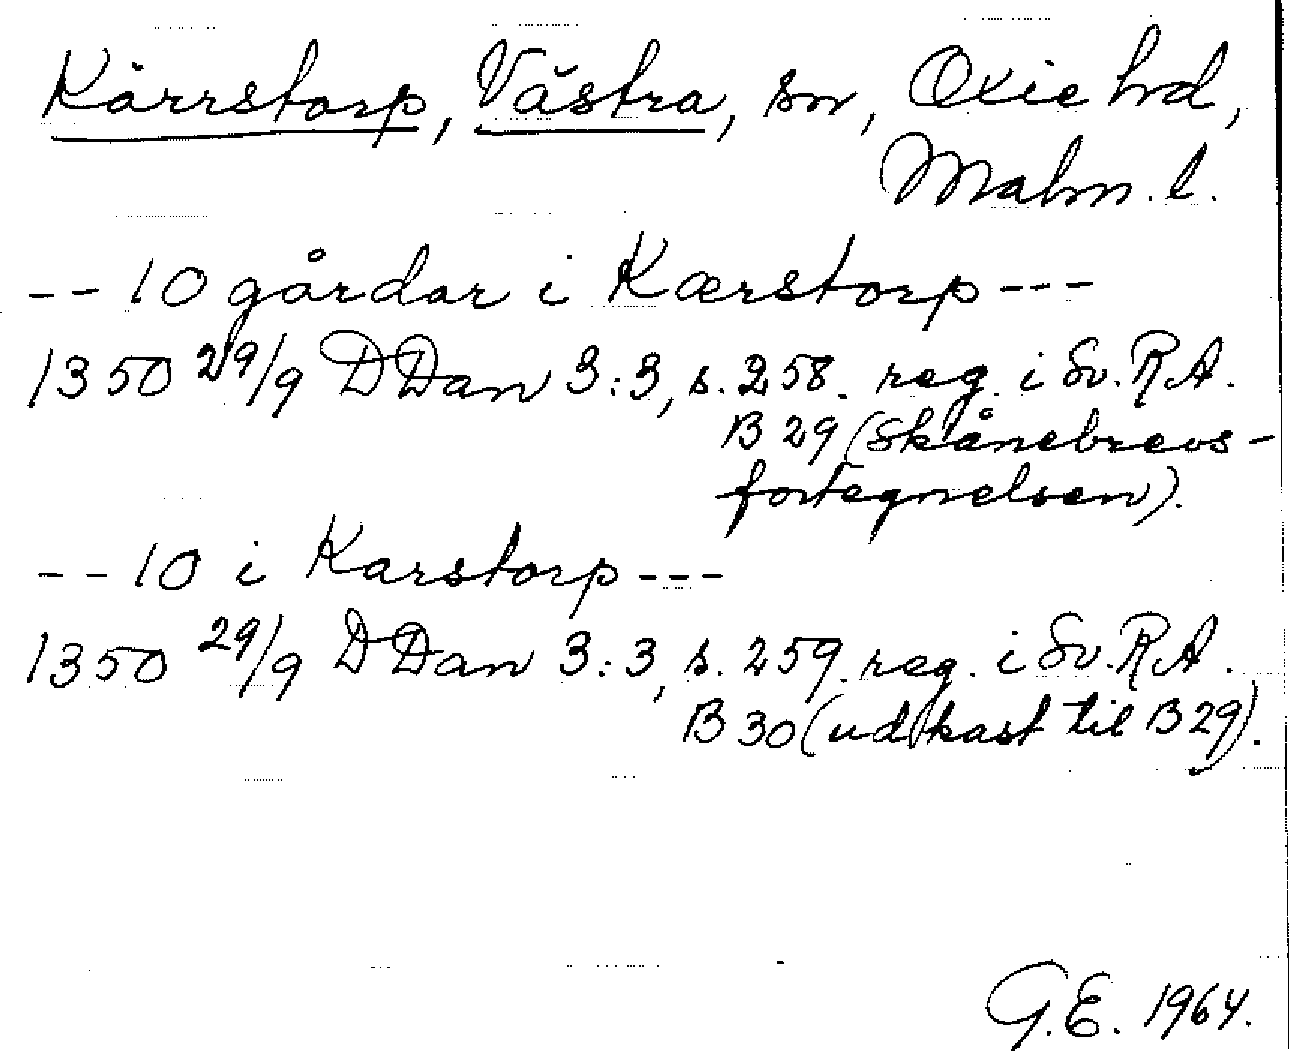 Kärrstorp, Västra, sn, Oxie hd,
Malm. l.
-- 10 gårdar i Kærstorp ---
1350 29/9 DDan 3:3, s. 258. reg. i Sv. RA.
B 29 (Skånebrevs-
fortegnelsen).
-- 10 i Karstorp ---
1350 29/9 DDan 3:3, s. 259. reg. i Sv. RA.
B 30 (udkast til B 29).
G.E. 1964.